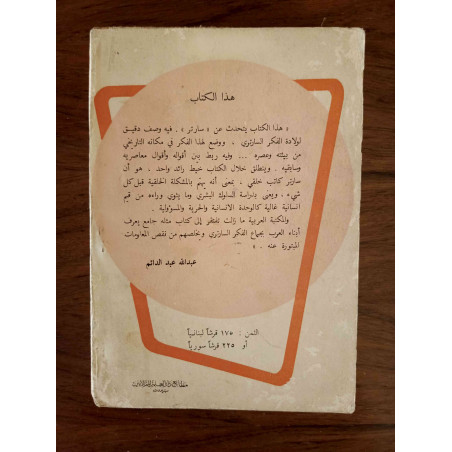 هذا الكتاب
« هذا الكتاب يتحدث عن « سارتر » . فيه وصف دقيق
لولادة الفكر السارتري . ووضع لهذا الفكر في مكانه التاريخي
من بيئته وعصره ... وفيه ربط بين أقواله وأقوال معاصريه
وسابقيه . وينطلق خلال الكتاب خيط رائد واحد . هو أن
سارتر كاتب خلقي ، بمعنى أنه يهتم بالمشكلة الخلقية قبل كل
شيء . ويعنى بدراسة السلوك البشري وما ينوي وراءه من قيم
انسانية غالية كالوحدة الانسانية والحرية والمسؤولية .
والمكتبة العربية ما زالت تفتقر إلى كتاب مثله جامع يعرف
أبناء العرب بجماع الفكر السارتري ويخلصهم من نقص المعلومات
المبتورة عنه . »
عبدالله عبد الدائم
الثمن : ١٧٥ قرشاً لبنانياً
أو ٢٢٥ قرشاً سورياً